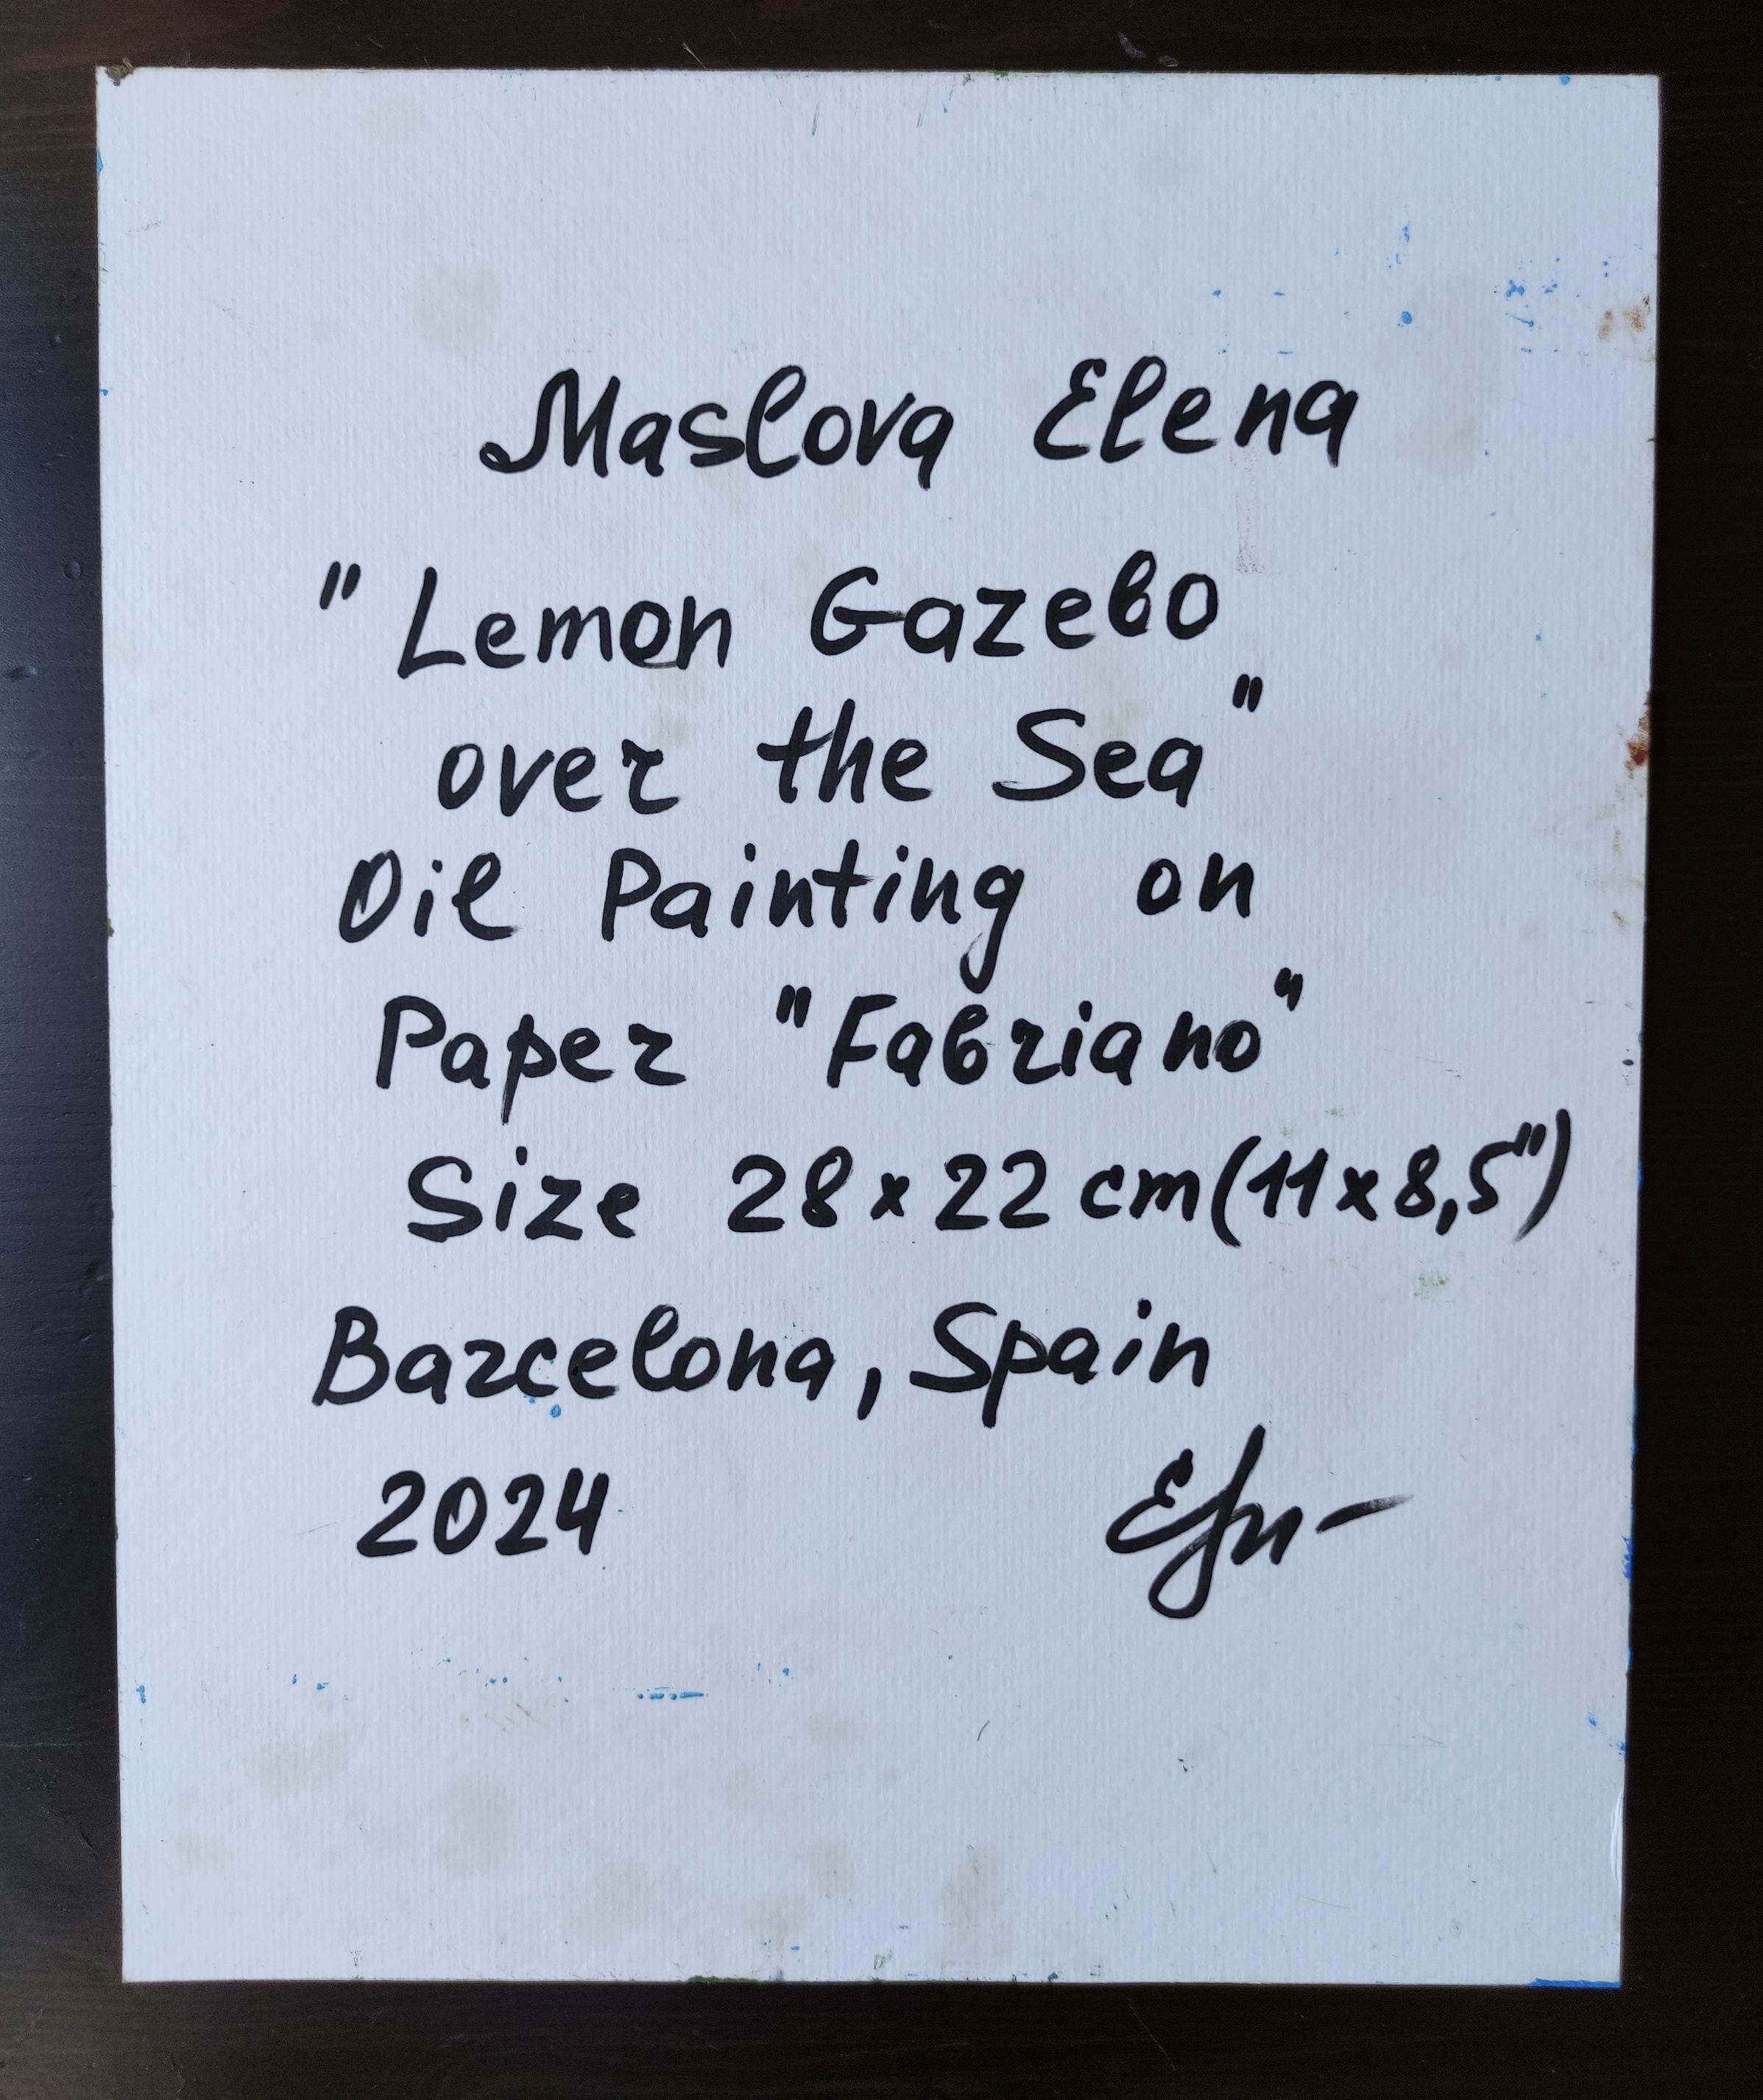 Maslova Elena
"Lemon Gazebo
over the Sea"
Oil Painting on
Paper "Fabriano"
Size 28x22 cm (11x8,5")
Barcelona, Spain
2024